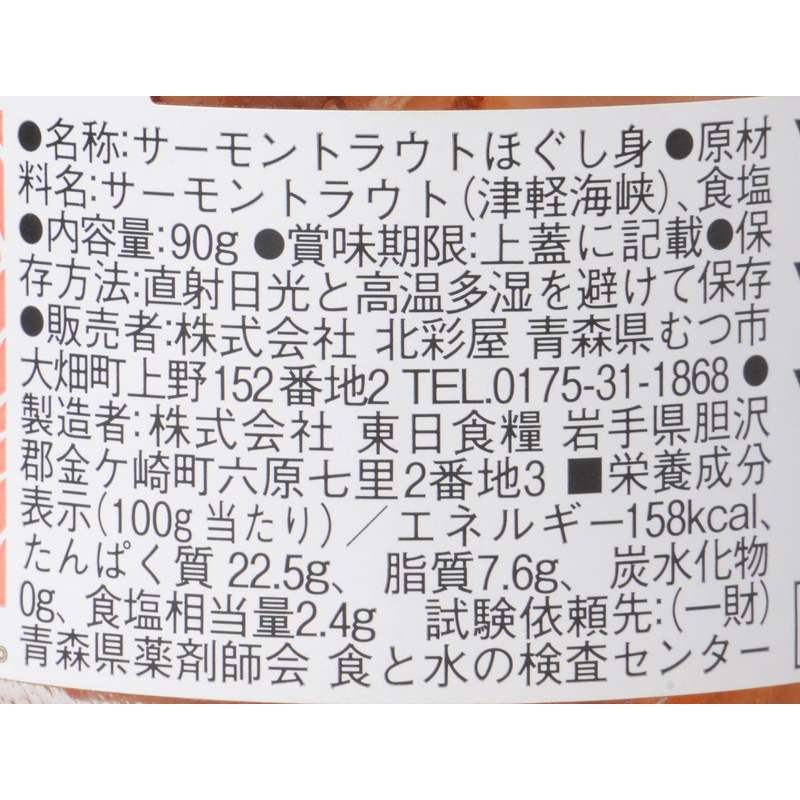 ●名称:サーモントラウトほぐし身 ●原材
料名:サーモントラウト(津軽海峡)、食塩
●内容量:90g ●賞味期限:上蓋に記載●保
存方法:直射日光と高温多湿を避けて保存
●販売者:株式会社 北彩屋 青森県むつ市
大畑町上野152番地2 TEL.0175-31-1868 ●
製造者:株式会社 東日食糧 岩手県胆沢
郡金ケ崎町六原七里2番地3 ■栄養成分
表示(100g当たり)／エネルギー158kcal、
たんぱく質 22.5g、 脂質7.6g、 炭水化物
0g、食塩相当量2.4g 試験依頼先:(一財)
青森県薬剤師会 食と水の検査センター